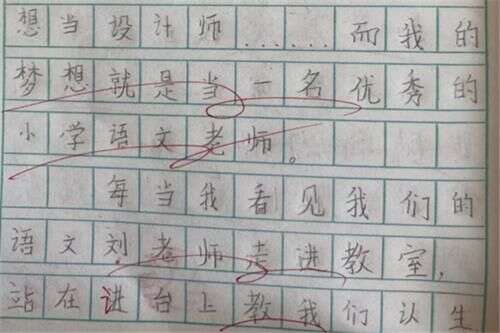 想当设计师……而我的
梦想就是当一名优秀的
小学语文老师。
每当我看见我们的
语文刘老师走进教室，
站在讲台上教我们认生